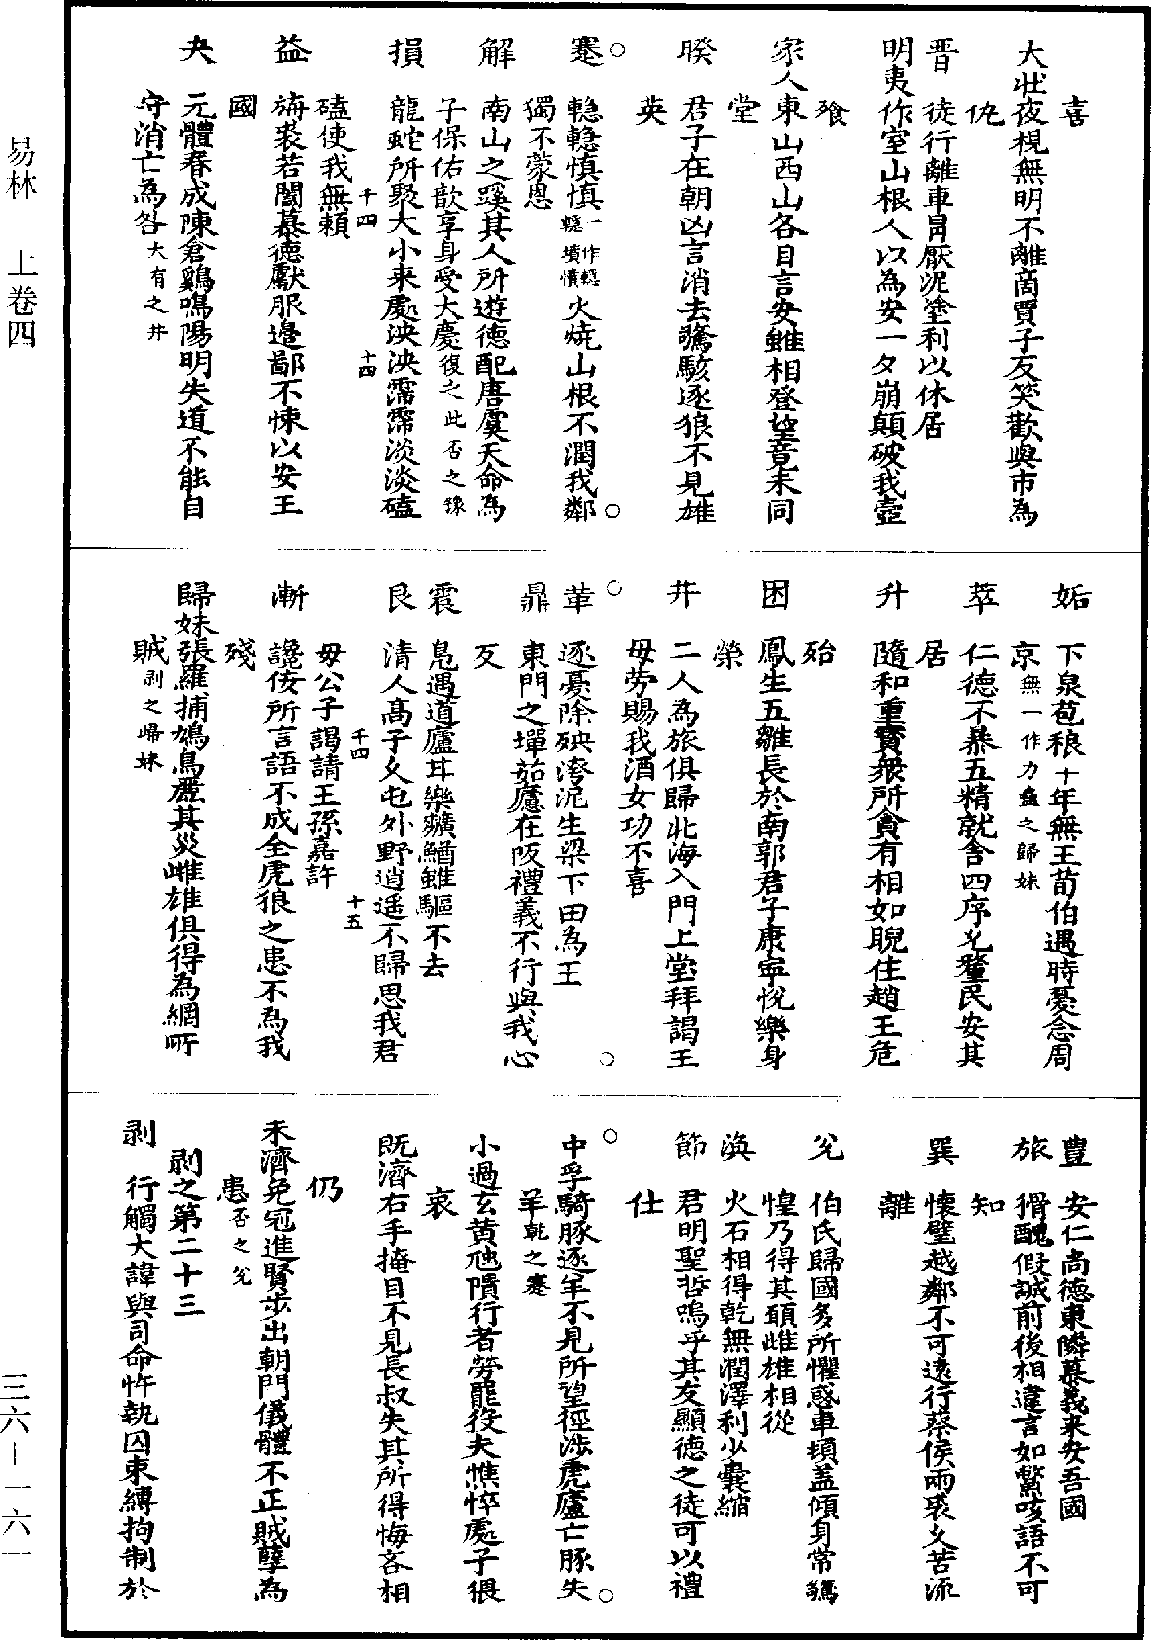 喜
大壯夜視無明不離商賈子友笑歡與市為
仇
晋　徒行離車冐厭泥塗利以休居
明夷作室山根人以為安一夕崩顛破我壺
飱
家人東山西山各自言安雖相登望竟未同
堂
睽　君子在朝凶言消去驚駭逐狼不見雄
英
蹇　轗轗慎慎火燒山根不潤我鄰
獨不蒙恩
解　南山之蹊其人所遊德配唐虞天命為
子保佑歆享身受大慶復之此否之
損　龍蛇所聚大小来處泱泱霈霈淡淡磕
磕使我無賴
千四
十四
益　旃裘若闔慕德獻服邊鄙不悚以安王
國
夬　元體春成陳倉鷄鳴陽明失道不能自
守消亡為咎大有之井
姤　下泉苞稂十年無王荀伯遇時憂念周
京無一作力蠱之歸妹
萃　仁德不暴五精就舍四序允釐民安其
居
升　隨和重寳衆所貪有相如睨住趙王危
殆
困　鳳生五雛長於南郭君子康寧悅樂身
榮
井　二人為旅俱歸北海入門上堂拜謁王
母勞賜我酒女功不喜
革　逐憂除殃洿泥生梁下田為王
鼎　東門之墠茹藘在阪禮義不行與我心
反
震　鳬遇道廬耳樂曠鰌雖驅不去
艮　清人髙子久屯外野逍遥不歸思我君
母公子謁請王孫嘉許
千四
十五
漸　讒佞所言語不成全虎狼之患不為我
殘
歸妹張羅捕鳩鳥麗其災雌雄俱得為網所
賊剥之歸妹
豊　安仁尚德東隣慕義来安吾國
旅　猾醜假誠前後相違言如鱉咳語不可
知
巽　懷璧越鄰不可遠行蔡侯兩裘久苦流
離
兊　伯氏歸國多所懼惑車頃盖傾身常驚
惶乃得其願雌雄相從
渙　火石相得乾無潤澤利少囊縮
節　君明聖哲嗚乎其友顯德之徒可以禮
仕
中孚騎豚逐羊不見所望徑涉虎廬亡豚失
羊乾之蹇
小過玄黄虺隤行者勞罷役夫憔悴處子猥
哀
既濟右手掩目不見長叔失其所得悔吝相
仍
未濟免冠進賢步出朝門儀體不正賊孽為
患否之兊
剥之第二十三
剥　行觸大諱與司命忤執囚束縛拘制於
易林　上卷四
三六－一六一